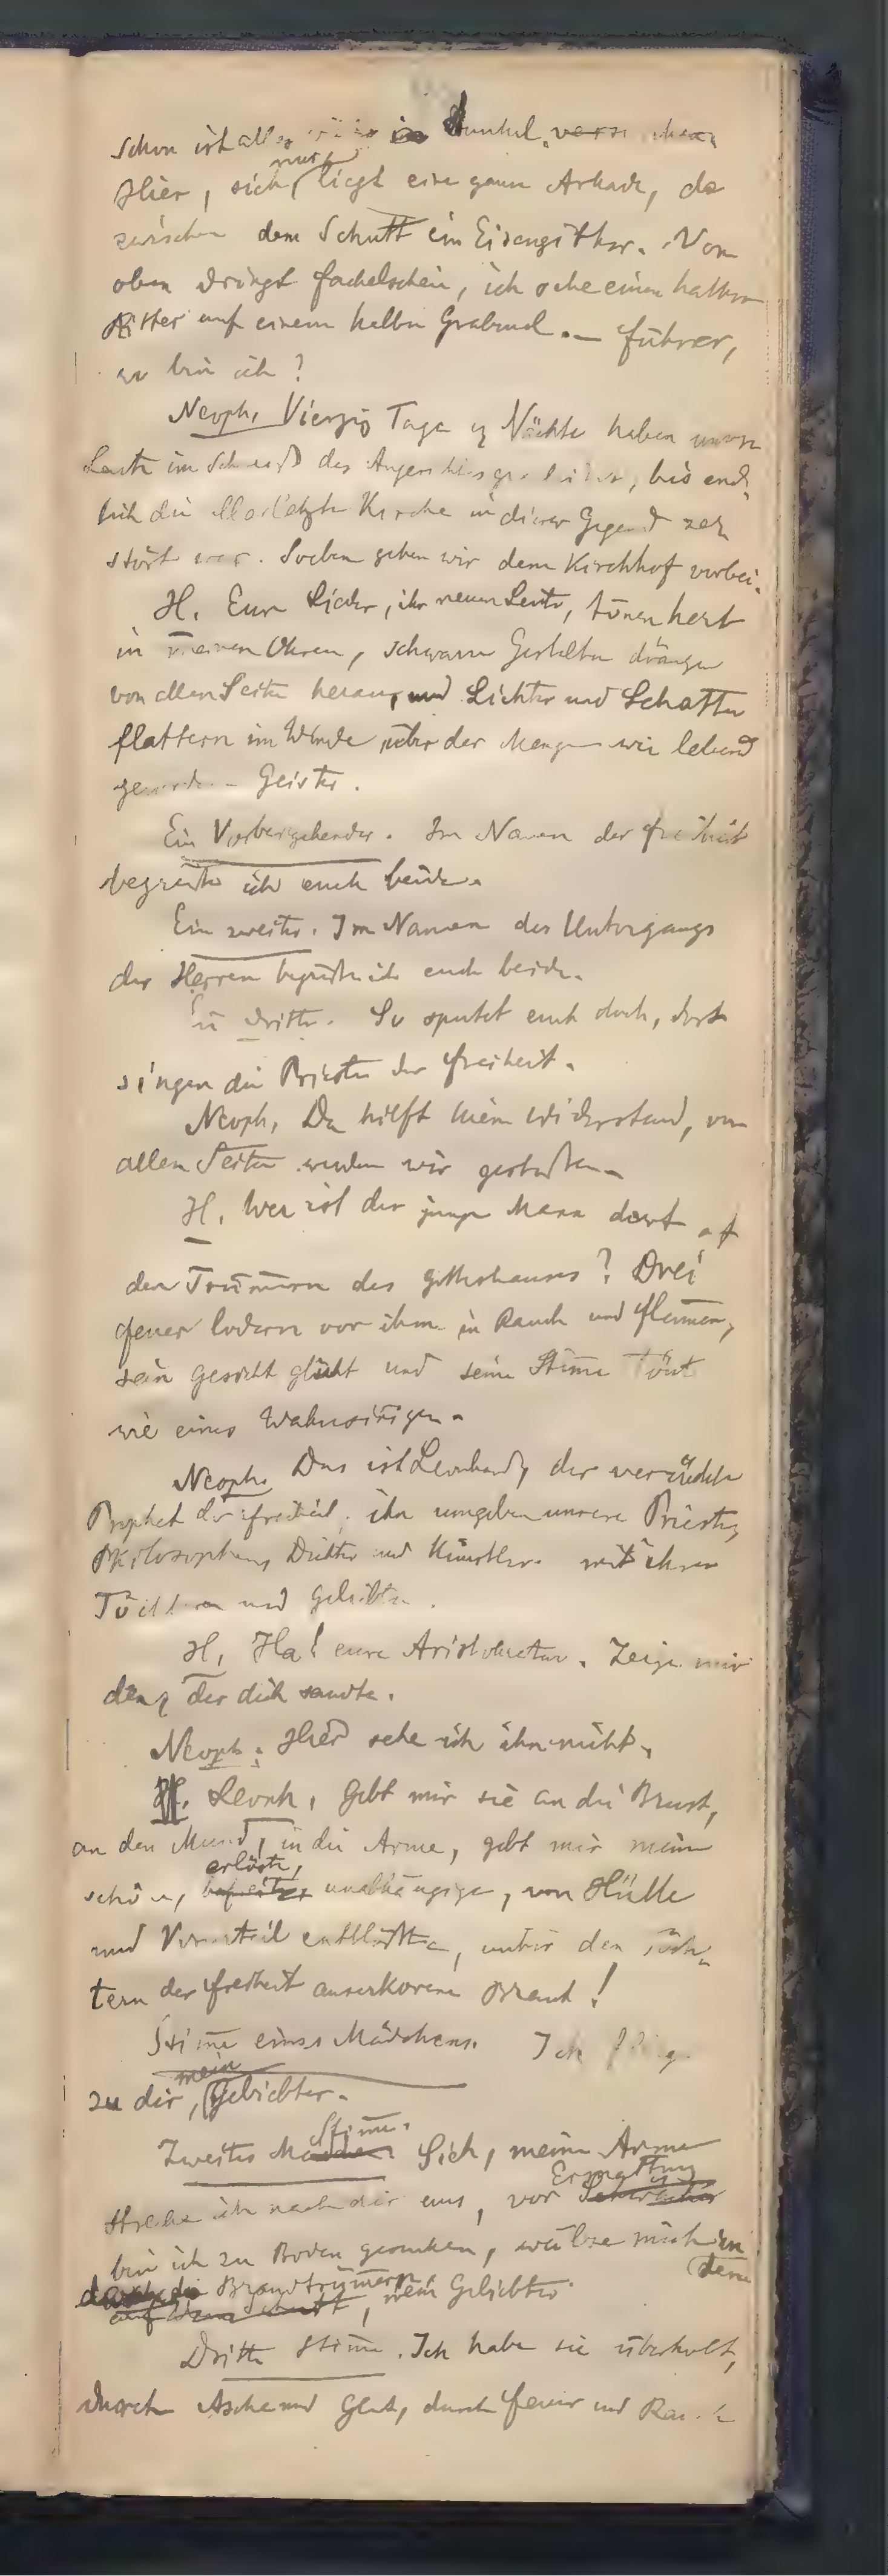 Schon ist alles in Dunkel
Hier, sieh, nur liegt eine ganze Arkade, da
zwischen dem Schutt ein Eisengitter. Von
oben dringt Fackelschein, ich sehe einen halben
Ritter auf einem halben Grabmal. — Führer,
wo bin ich?
Neoph. Vierzig Tage u Nächte haben unsere
Leute im Schweiß des Angesichts, bis end-
lich die allerletzte Kirche in dieser Gegend zer-
stört war. Soeben gehen wir dem Kirchhof vorbei.
H. Eure Lieder, ihr neuen Leute, tönen herb
in meinen Ohren, schwarze Gestalten drängen
von allen Seiten heran, und Lichter und Schatten
flattern im Winde über der Menge wie lebend
gewordene Geister.
Ein Vorbeigehender. Im Namen der Freiheit
begrüße ich euch beide.
Ein zweiter. Im Namen des Untergangs
der Herren begrüße ich euch beide.
Ein dritter. So sputet euch doch, dort
singen die Priester der Freiheit.
Neoph. Da hilft kein Widerstand, von
allen Seiten werden wir gestoßen.
H. Wer ist der junge Mann dort auf
den Trümmern des Gotteshauses? Drei
Feuer lodern vor ihm in Rauch und Flammen,
sein Gesicht glüht und seine Stimme tönt
wie eines Wahnsinnigen.
Neoph. Das ist Leonhard, der verzückte
Prophet der Freiheit, ihn umgeben unsere Priester,
Philosophen, Dichter und Künstler mit ihren
Töchtern und Geliebten.
H. Ha! eure Aristokratie. Zeige mir
den, der dich sandte.
Neoph. Hier sehe ich ihn nicht.
H. Leonh. Gebt mir sie an die Brust,
an den Mund, in die Arme, gebt mir meine
schöne, erlöste, befreite, unabhängige, von Hülle
und Vorurteil entblößte, unter den Töch-
tern der Freiheit auserkorene Braut!
Stimme eines Mädchens. Ich fliege
zu dir, mein Geliebter.
Zweites Mädchen Stimme. Sieh, meine Arme
strecke ich nach dir aus, vor Schwäche Ermattung
bin ich zu Boden gesunken, wälze mich in den
Brandtrümmern, mein Geliebter.
auf dem Schutt
Dritte Stimme. Ich habe sie überholt,
durch Asche und Glut, durch Feuer und Rauch